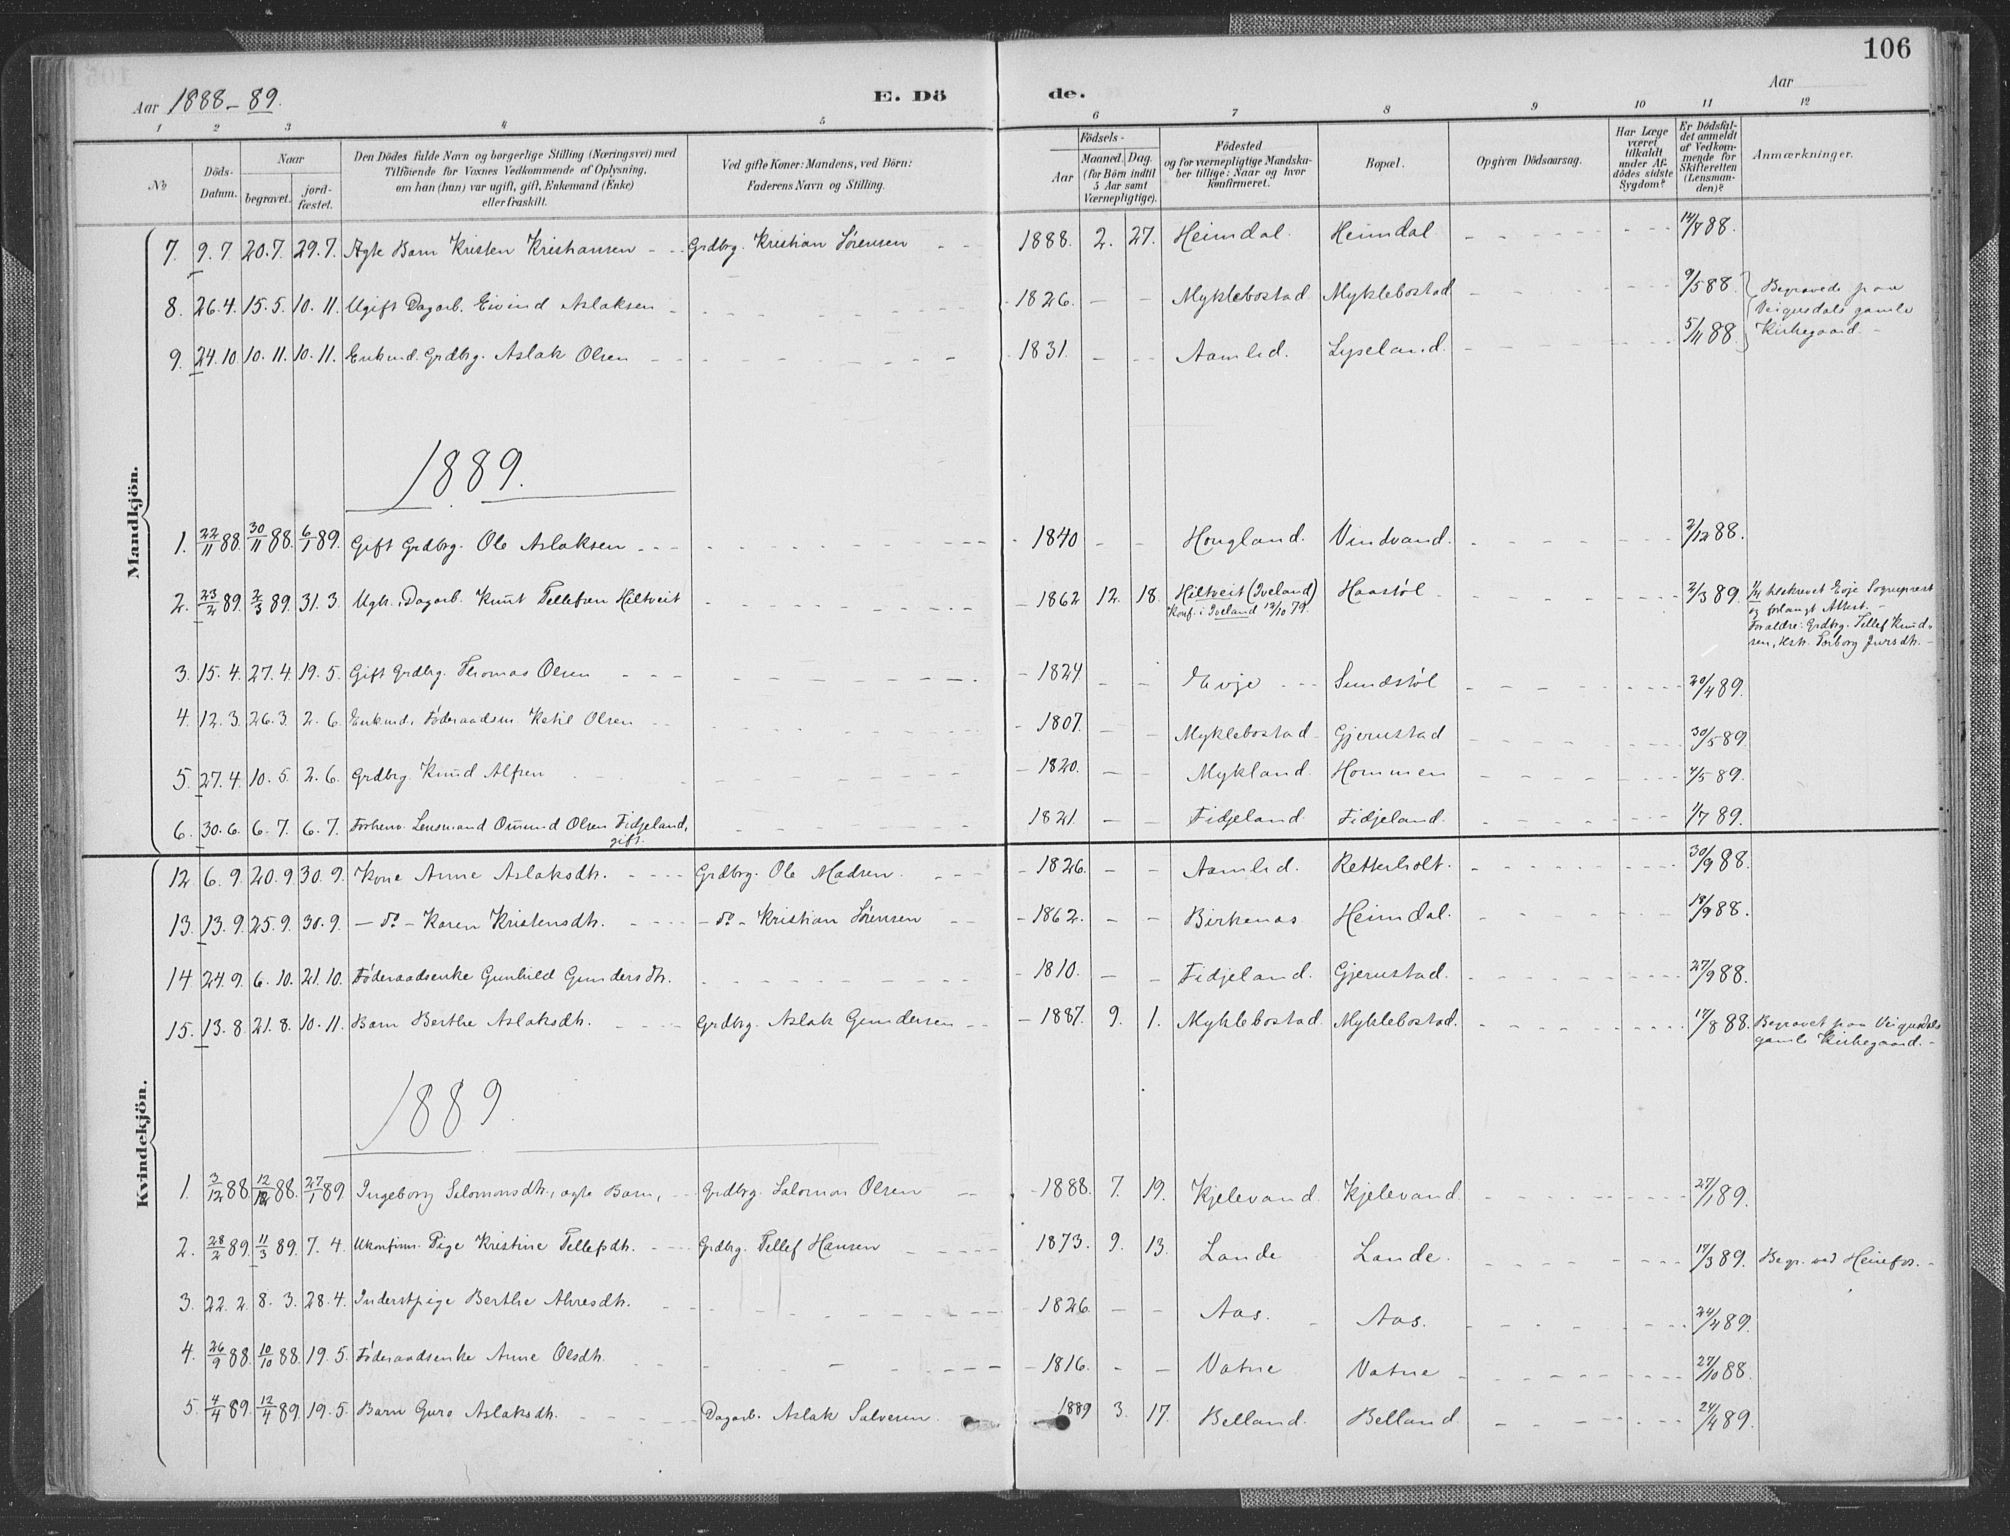 106
Aar 1888-89.
E. Döde.
Aar
1 2 3 4 5 6 7 8 9 10 11 12
No
Döds-Datum.
Naar
begravet.
jordfæstet.
Den Dödes fulde Navn og borgerlige Stilling (Næringsvei) med
Tilföiende for Voxnes Vedkommende af Oplysning,
om han (hun) var ugift, gift, Enkemand (Enke)
eller fraskilt.
Ved gifte Koner: Mandens, ved Börn:
Faderens Navn og Stilling.
Födsels-
Aar
Maaned. Dag.
(for Börn indtil
5 Aar samt
Værnepligtige).
Födested
og for værnepligtige Mandskaber tillige: Naar og hvor
konfirmeret.
Bopæl.
Opgiven Dödsaarsag.
Har Læge
været
tilkaldt
under Afdödes sidste
Sygdom?
Er Dödsfaldet anmeldt
af Vedkommende for
Skifteretten
(Lensmanden)?
Anmærkninger.
Mandkjön.
7. 9.7 20.7. 29.7. Ægte Barn Kristen Kristiansen - - Grdbrg. Kristian Sörensen - - 1888. 2. 27. Heimdal. Heimdal - - - 14/8 88.
8. 26.4. 15.5. 10.11. Ugift Dagarb. Eivind Aslaksen - - 1826. - - Myklebostad Myklebostad - - - 9/5 88. Begravede paa
Veigusdals gamle
9. 24.10 10.11. 10.11. Enkmd. Grdbrg. Aslak Olsen - - 1831. - - Aamlid. Lyseland. - - - 5/11 88. Kirkegaard. -
1889.
1. 22/11 88. 30/11 88. 6/1 89. Gift Grdbrg. Ole Aslaksen - - 1840 - - Hougland. Vindvand. - - - 2/12 88.
2. 23/2 89. 2/3 89. 31.3. Ugh. Dagarb. Knut Tellefsen Hiltveit - - 1862 12. 18. Hiltveit (Iveland) Haastöl - - - 2/3 89. 1/4 tilskrevet Evje Sogneprest
Konf. i Iveland 12/10 79. og forlangt Attest. -
Forældre: Grdbrg. Tellef Knudsen, Hst. Torborg Jversdtr. -
3. 15.4. 27.4. 19.5. Gift Grdbrg. Thomas Olsen - - - 1824. - - Evje - - Sundstöl - - - 20/4 89.
4. 12.3. 26.3. 2.6. Enkmd. Föderaadsm. Ketil Olsen - - 1807. - - Myklebostad Gjerustad - - - 30/5 89.
5. 27.4. 10.5. 2.6. Grdbrg Knud Alfsen - - 1820. - - Mykland. Hommen - - - 4/5 89.
6. 30.6. 6.7. 6.7. Forhenv. Lensmand Omund Olsen Fidjeland, gift. - - 1821. - - Fidjeland Fidjeland. - - - 1/7 89.
Kvindekjön.
12. 6.9. 20.9. 30.9. Kone Anne Aslaksdtr. - - - Grdbrg. Ole Madsen. - - - 1826. - - Aamlid. Retterholt. - - - 30/9 88.
13. 13.9. 25.9. 30.9. - do - Karen Kristensdtr. - - - do - Kristian Sörensen - - 1862. - - Birkenæs Heimdal. - - - 18/9 88.
14 24.9. 6.10. 21.10. Föderaadsenke Gunhild Gundersdtr. - - 1810. - - Fidjeland. Gjerustad. - - - 27/9 88.
15. 13.8. 21.8. 10.11. Barn Berthe Aslaksdtr. - - - Grdbrg. Aslak Gundersen - - 1887. 9. 1. Myklebostad. Myklebostad. - - - 17/8 88. Begravet paa Veigusdals
gamle Kirkegaard. -
1889.
1. 3/12 88. 12/12 88. 27/1 89. Ingeborg Salomonsdtr., ægte Barn, - - Grdbrg. Salomon Olsen - - 1888. 7. 19. Kjelevand. Kjelevand. - - - 27/1 89.
2. 28/2 89. 11/3 89. 7.4. Ukonfirm. Pige Kristine Tellefsdtr. - - Grdbrg. Tellef Hansen - - 1873. 9. 13. Lande Lande. - - - 17/3 89. Begr. ved Heinefos. -
3. 22.2. 8.3. 28.4. Inderstpige Berthe Ahresdtr. - - 1826. - - Aas. Aas. - - - 24/4 89.
4. 26/9 88. 10/10 88. 19.5. Föderaadsenke Anne Olsdtr. - - 1816. - - Vatne Vatne - - - 27/10 88.
5. 4/4 89. 12/4 89. 19.5. Barn Guro Aslaksdtr. - - Dagarb. Aslak Salvesen. 1889 3. 17. Belland. Belland - - - 24/4 89.